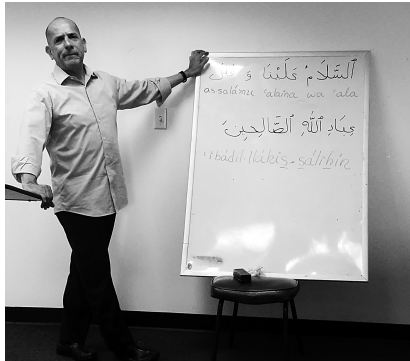 اَلسَّلَامُ عَلَيْنَا وَ عَلَى
as-salámu 'alaina wa 'ala
عِبَادِ اللّٰهِ الصَّالِحِينَ
'Ibádil-láhis-sálihín